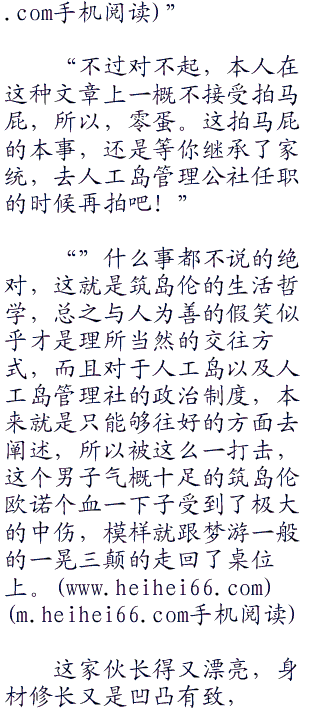 .com手机阅读)”
“不过对不起，本人在
这种文章上一概不接受拍马
屁，所以，零蛋。这拍马屁
的本事，还是等你继承了家
统，去人工岛管理公社任职
的时候再拍吧！”
“”什么事都不说的绝
对，这就是筑岛伦的生活哲
学，总之与人为善的假笑似
乎才是理所当然的交往方
式，而且对于人工岛以及人
工岛管理社的政治制度，本
来就是只能够往好的方面去
阐述，所以被这么一打击，
这个男子气概十足的筑岛伦
欧诺个血一下子受到了极大
的中伤，模样就跟梦游一般
的一晃三颠的走回了桌位
上。(www.heihei66.com)
(m.heihei66.com手机阅读)
这家伙长得又漂亮，身
材修长又是凹凸有致，